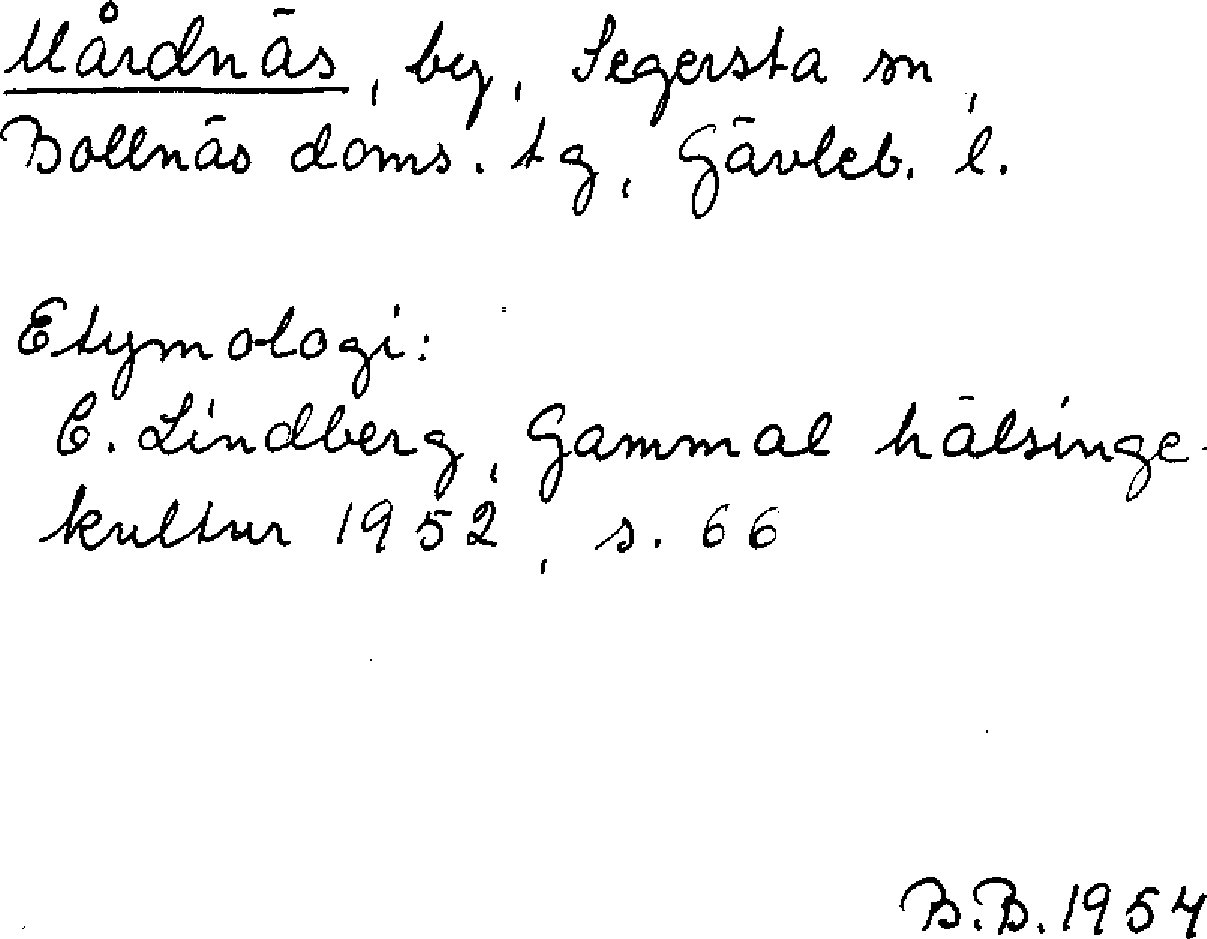 Mårdnäs, by, Segersta sn,
Bollnäs doms. tg, Gävleb. l.
Etymologi:
C. Lindberg, Gammal hälsinge-
kultur 1952, s. 66
B.B. 1954